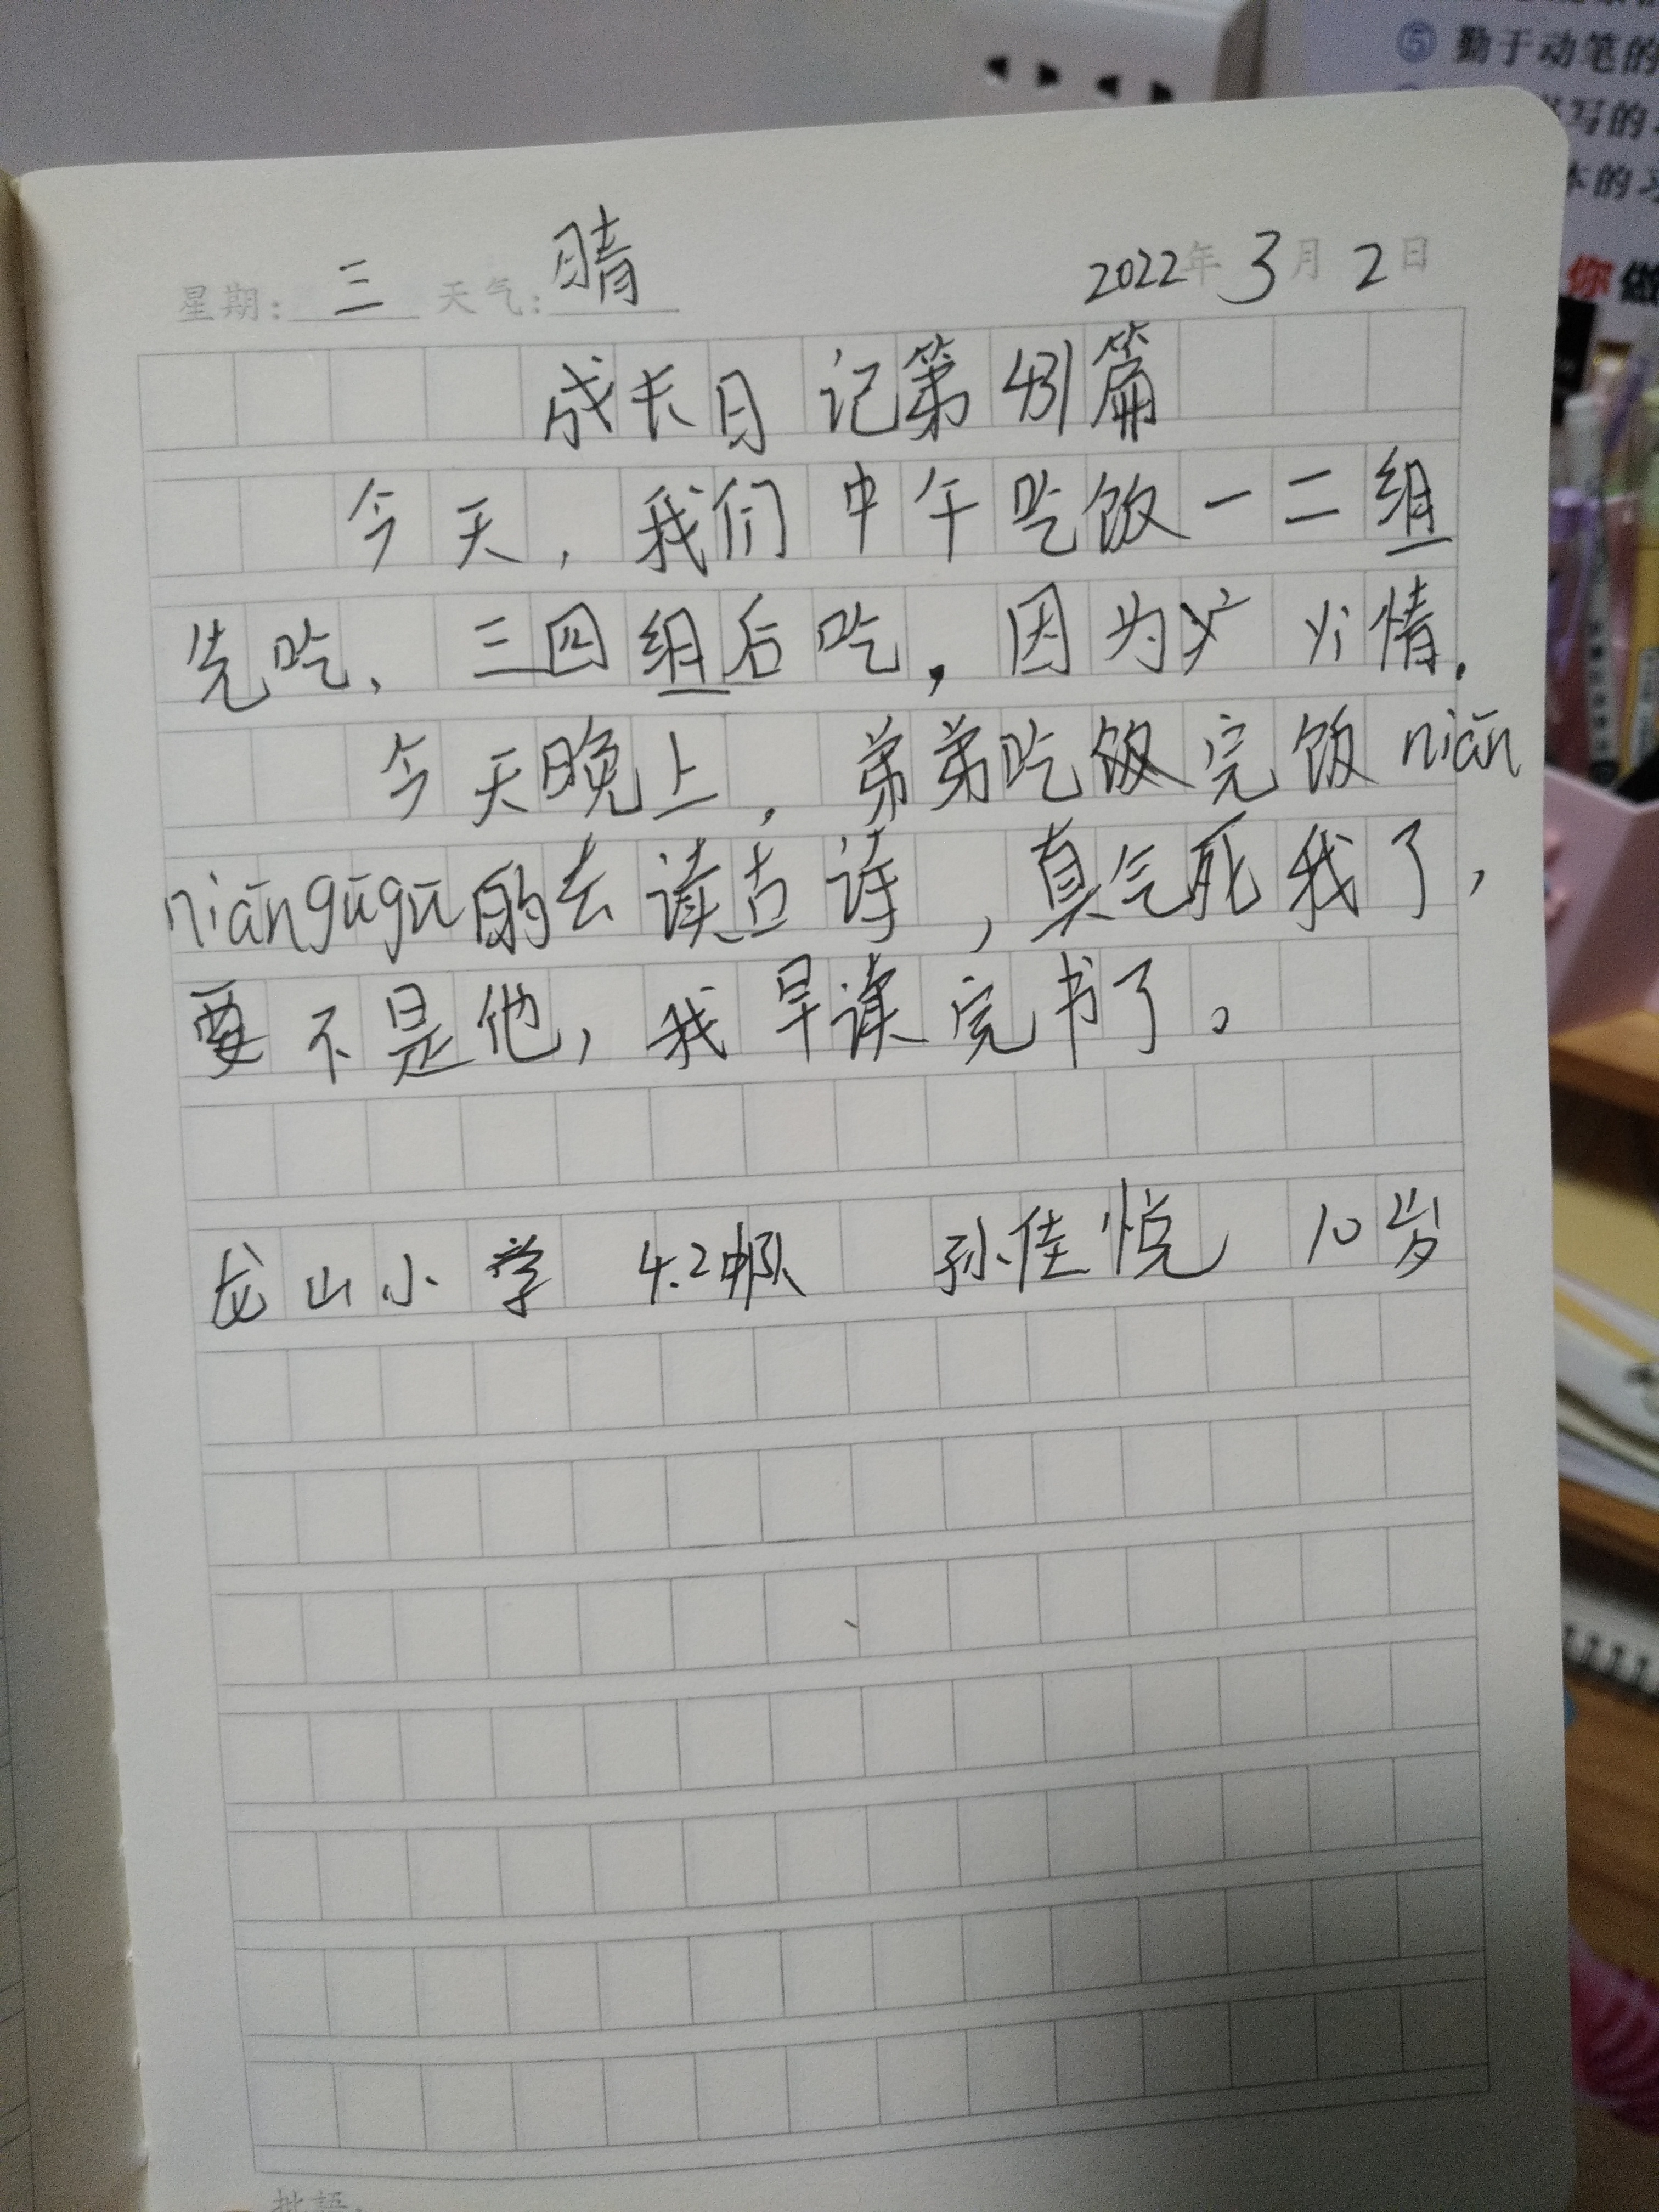 ⑤ 勤于动笔的
写的
本的习
你做
星期: 三 天气: 晴 2022年3月2日
成长日记第431篇
今天,我们中午吃饭一二组
先吃、三四组后吃,因为 情.
今天晚上,弟弟吃饭完饭niān
niāngūgū的去读古诗,真气死我了,
要不是他,我早读完书了。
龙山小学 4.2中队 孙佳悦 10岁
批語: